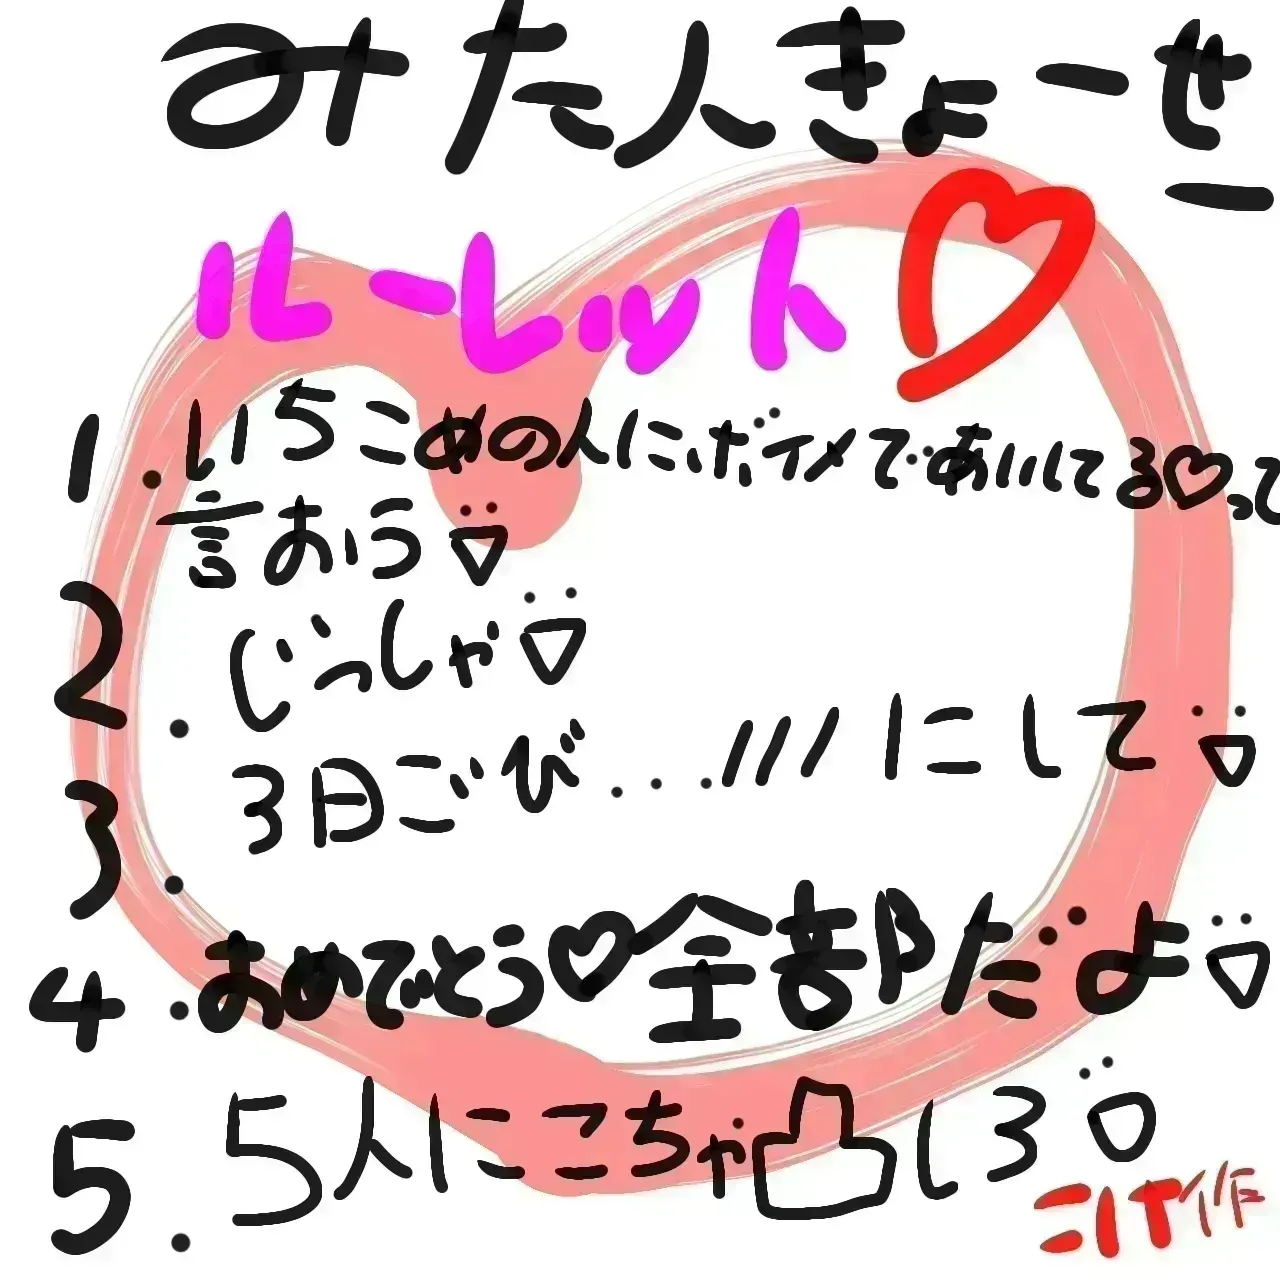 みた人きょーせー
ルーレット♡
1.いちこめの人にボイメであいしてる♡って
言おうü
2.じっしゃü
3.3日ごび...///にしてü
4.おめでとう♡全部だよü
5.5人にこちゃ凸しろü
作